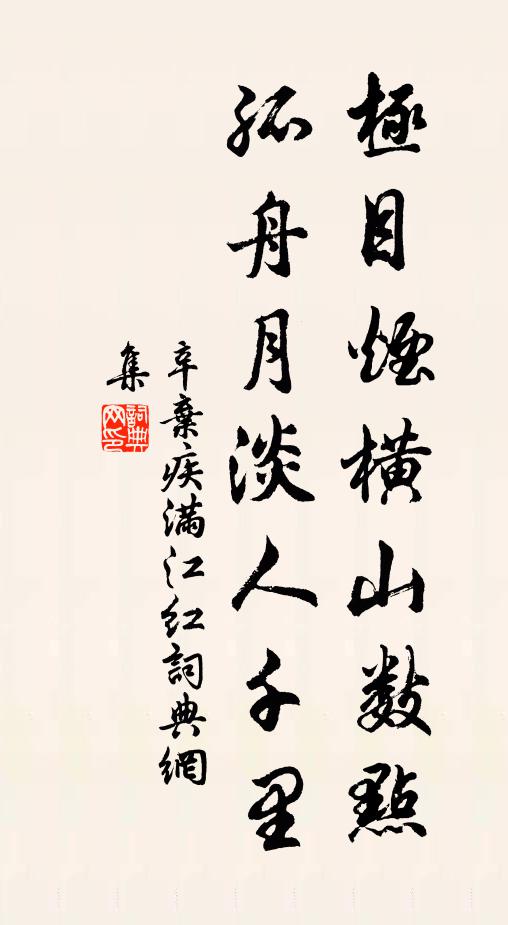 極目煙橫山數點
孤舟月淡人千里
辛棄疾滿江红詞典網
集
詞典网印